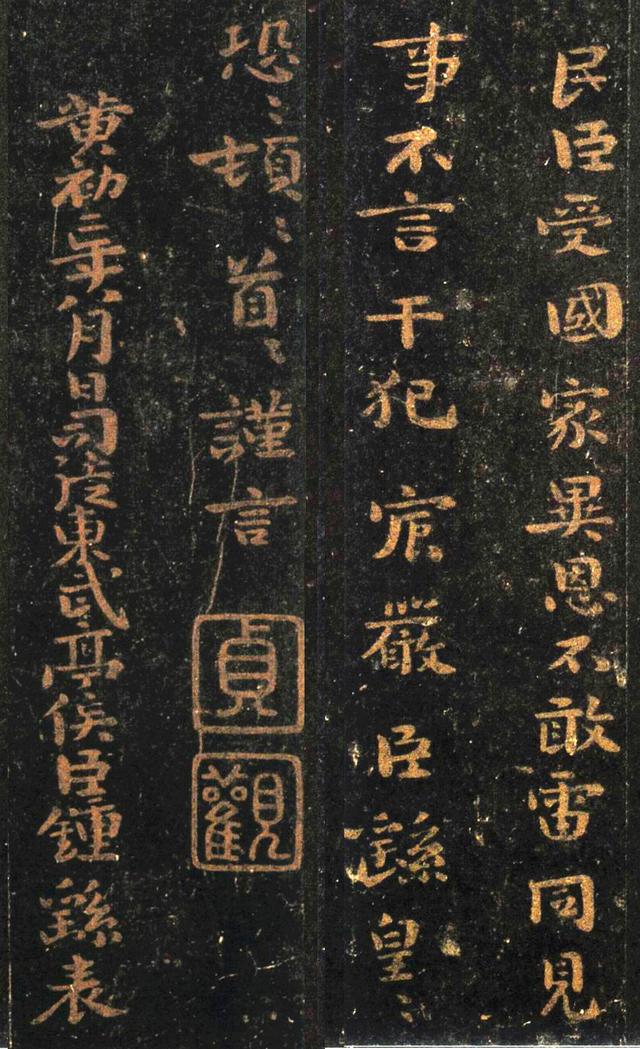 民臣受國家異恩不敢雷同見
事不言干犯宸嚴臣繇皇〻
恐〻頓〻首〻謹言
貞
觀
黃初二年八月日司徒東武亭侯臣鍾繇表